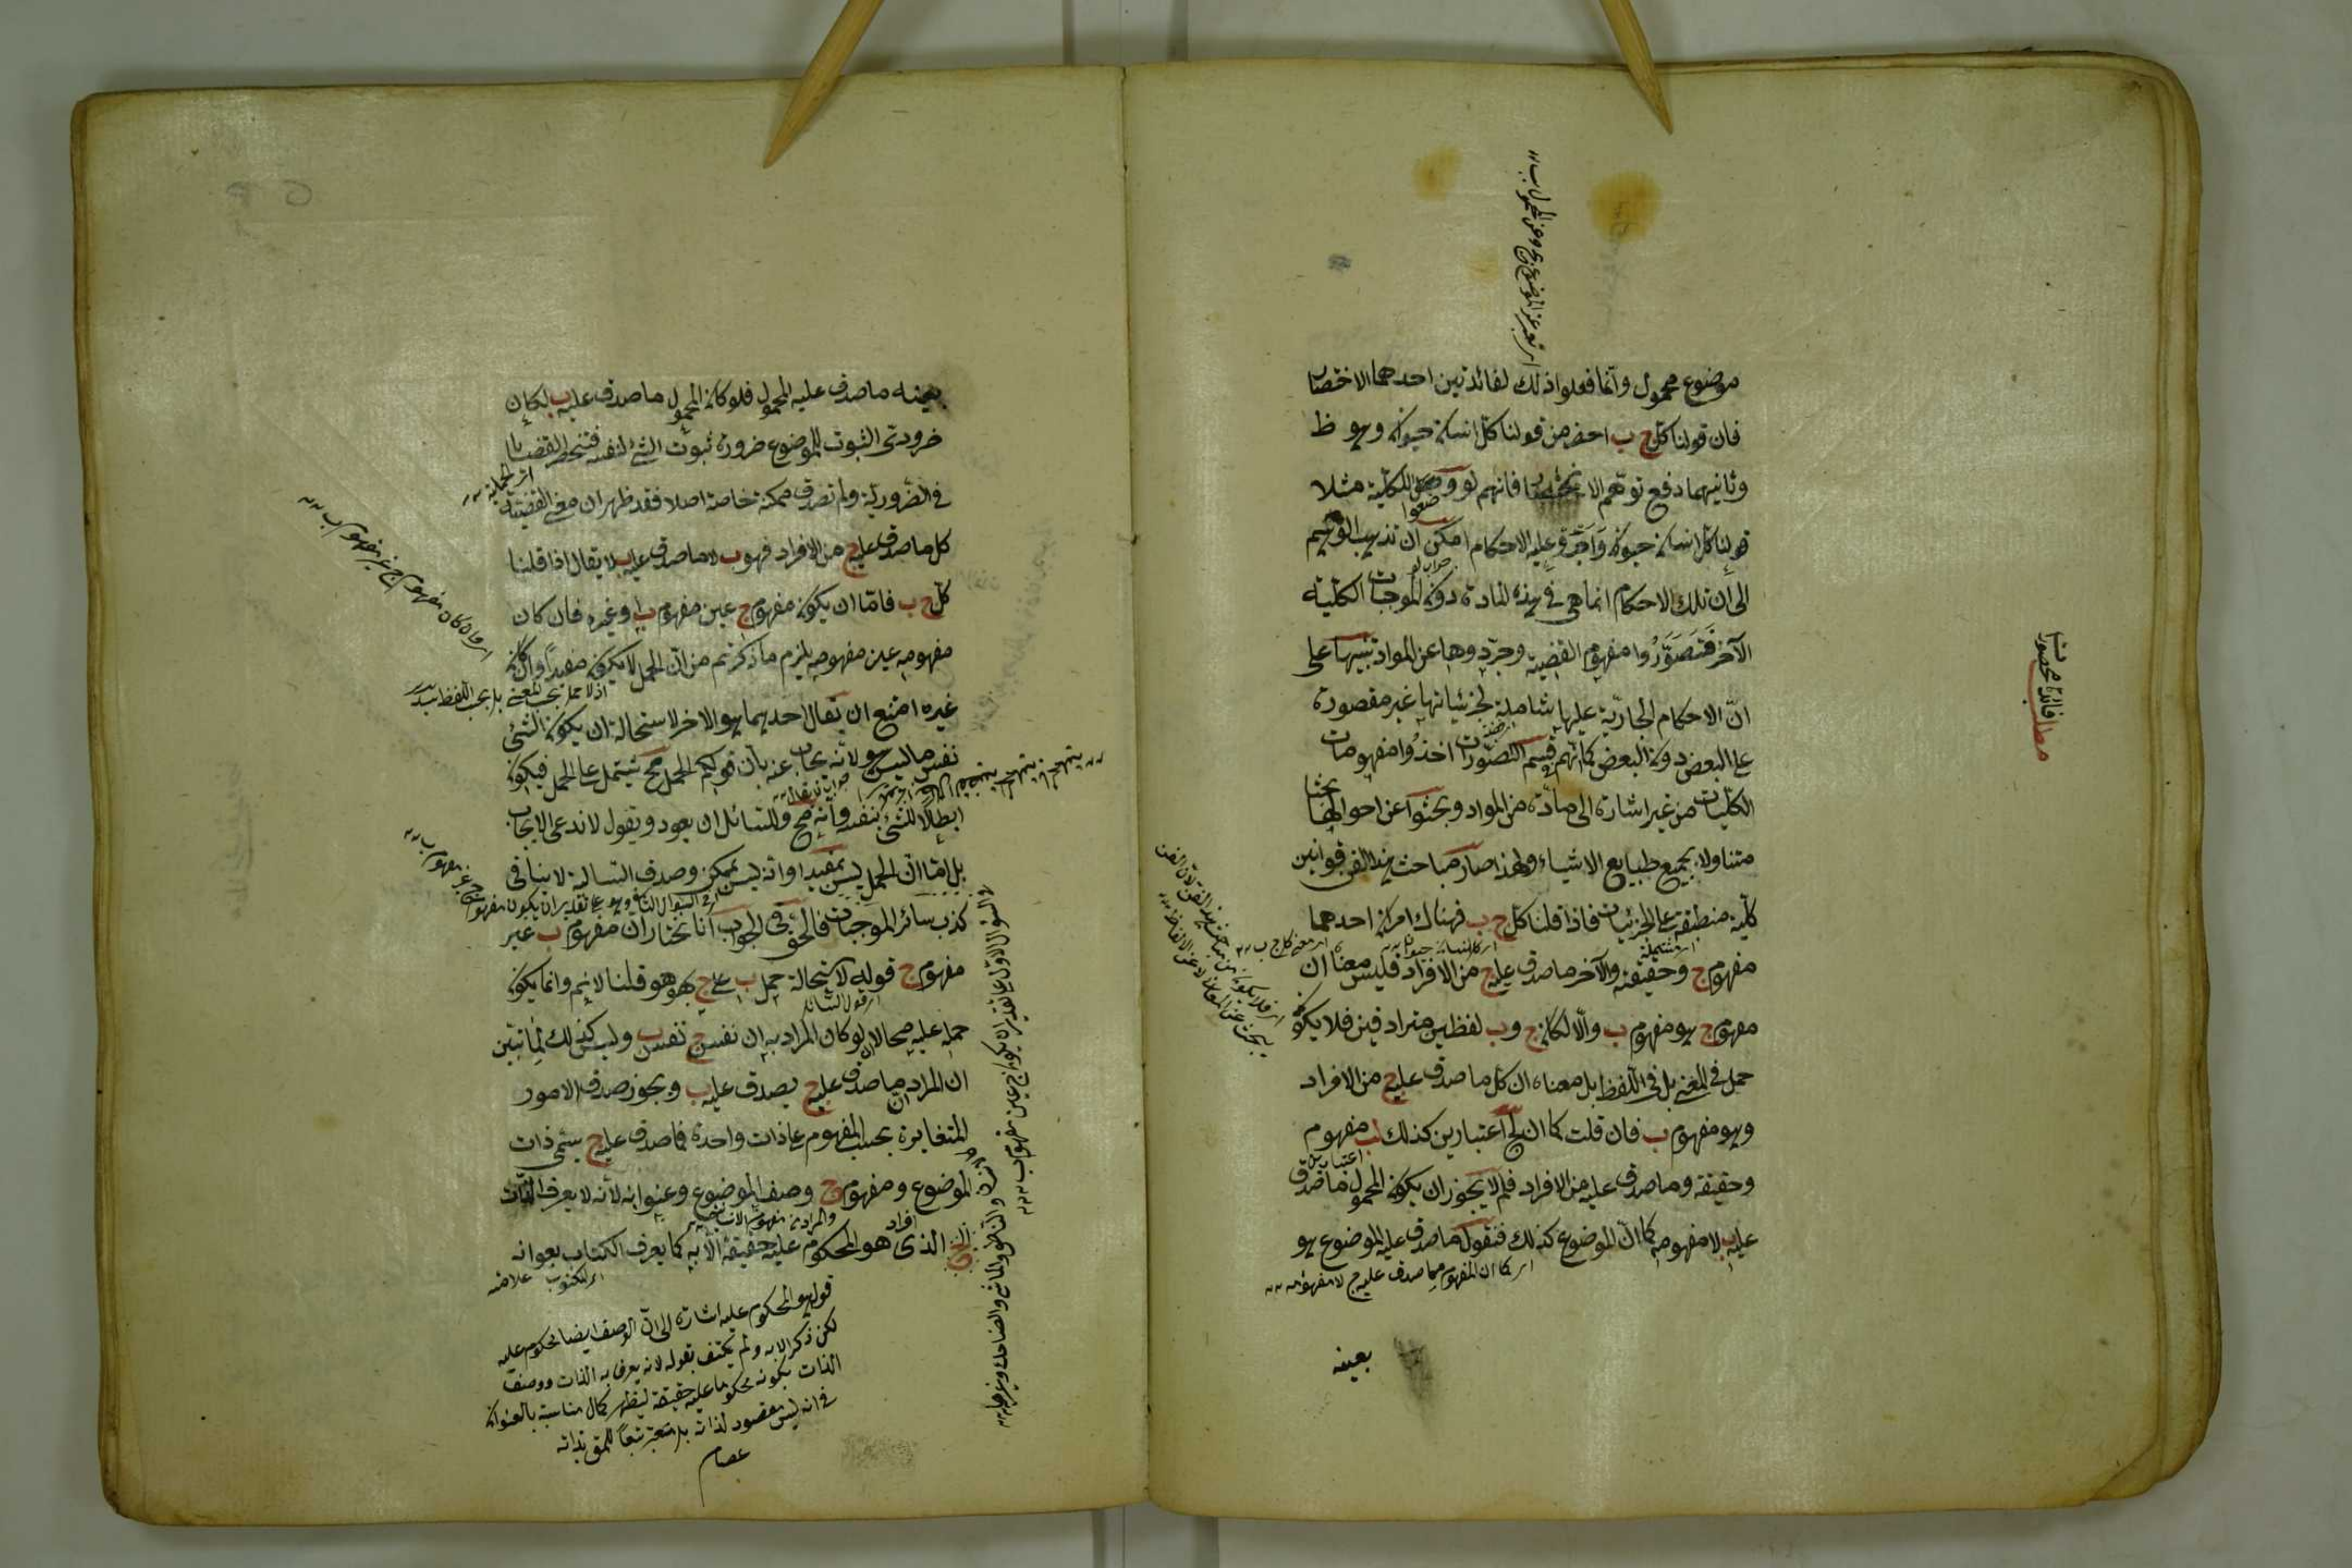 موضوع محمول وانما فعلوا ذلك لفائدتين احدهما الاختصار
فان قولنا كل ج ب اخصر من قولنا كل انسان حيوان وهو ظ
وثانيهما دفع توهم الانحصار فانهم لو وضعوا للكلية مثلا
قولنا كل انسان حيوان واجروا عليه الاحكام امكن ان تذهب الوهم
الى ان تلك الاحكام انما هي في هذه المادة دون الموجبات الكلية
الآخر فتصوروا مفهوم القضية وجردوها عن المواد تنبيها على
ان الاحكام الجارية عليها شاملة لجزئياتها غير مقصورة
على البعض دون البعض كما انهم في قسم التصورات اخذوا مفهومات
الكليات من غير اشارة الى مادة من المواد وبحثوا عن احوالها بحثا
متناولا بجميع طبايع الاشياء ولهذا صار مباحث هذا الفن قوانين
كلية منطبقة على الجزئيات فاذا قلنا كل ج ب فهناك امران احدهما
مفهوم ج وحقيقته والآخر ما صدق عليه ج من الافراد فليس معناه ان
مفهوم ج هو مفهوم ب والا لكان ج وب لفظين مترادفين فلا يكون
حمل في المعنى بل في اللفظ بل معناه ان كل ما صدق عليه ج من الافراد
وهو مفهوم ب فان قلت كما ان لج اعتبارين كذلك لب مفهوم
وحقيقة وما صدق عليه من الافراد فلم لا يجوز ان يكون المحمول ما صدق
عليه ب لا مفهومه كما ان الموضوع كذلك فنقول ما صدق عليه الموضوع هو
اى كما ان المفهوم مما صدق عليه ج لا مفهومه
بعينه
اى تعبر عن الموضوع بج وعن المحمول بب
مطلب فائدة محصورات
بعينه ما صدق عليه المحمول فلو كان المحمول ما صدق عليه ب لكان
ضرورى الثبوت للموضوع ضرورة ثبوت الشئ لنفسه فتنحصر القضايا
اى الحملية
في الضرورية ولم تصدق ممكنة خاصة اصلا فقد ظهر ان معنى القضية
كل ما صدق عليه ج من الافراد فهو ب لا ما صدق عليه ب لا يقال اذا قلنا
كل ج ب فاما ان يكون مفهوم ج عين مفهوم ب او غيره فان كان
مفهومه عين مفهومه يلزم ما ذكرتم من ان الحمل لا يكون مفيدا وان كان
اذ لا حمل بحسب المعنى بل بحسب اللفظ
غيره امتنع ان يقال احدهما هو الاخر لاستحالة ان يكون الشئ
نفس ما ليس هو لانه يجاب عنه بان قولكم الحمل مح يشتمل على الحمل فيكون
ابطالا للشئ بنفسه وانه مح وللسائل ان يعود ويقول لا ندعى الايجاب
بل اما ان الحمل ليس بمفيد او انه ليس بممكن وصدق السالبة لا ينافى
كذب سائر الموجبات فالحق في الجواب انا نختار ان مفهوم ب غير
مفهوم ج قوله لاستحالة حمل ب على ج بهو هو قلنا لا نم وانما يكون
اى قول السائل
حمله عليه محالا لو كان المراد به ان نفس ج نفس ب وليس كذلك لما تبين
ان المراد ان ما صدق عليه ج يصدق عليه ب ويجوز صدق الامور
المتغايرة بحسب المفهوم على ذات واحدة فما صدق عليه ج يسمى ذات
الموضوع ومفهوم ج وصف الموضوع وعنوانه لانه لا يعرف الذات
الذى هو المحكوم عليه حقيقة الا به كما يعرف الكتاب بعنوانه
اى المكتوب
قوله هو المحكوم عليه اشارة الى ان الوصف ايضا محكوم عليه
لكن ذكر الا به ولم يكتف بقوله لانه يعرف به الذات ووصف
الذات بكونه محكوما عليه حقيقة ليظهر كمال مناسبة بالعنوان
في انه ليس مقصود لذاته بل متعبر تبعا للمق بذاته
عصام